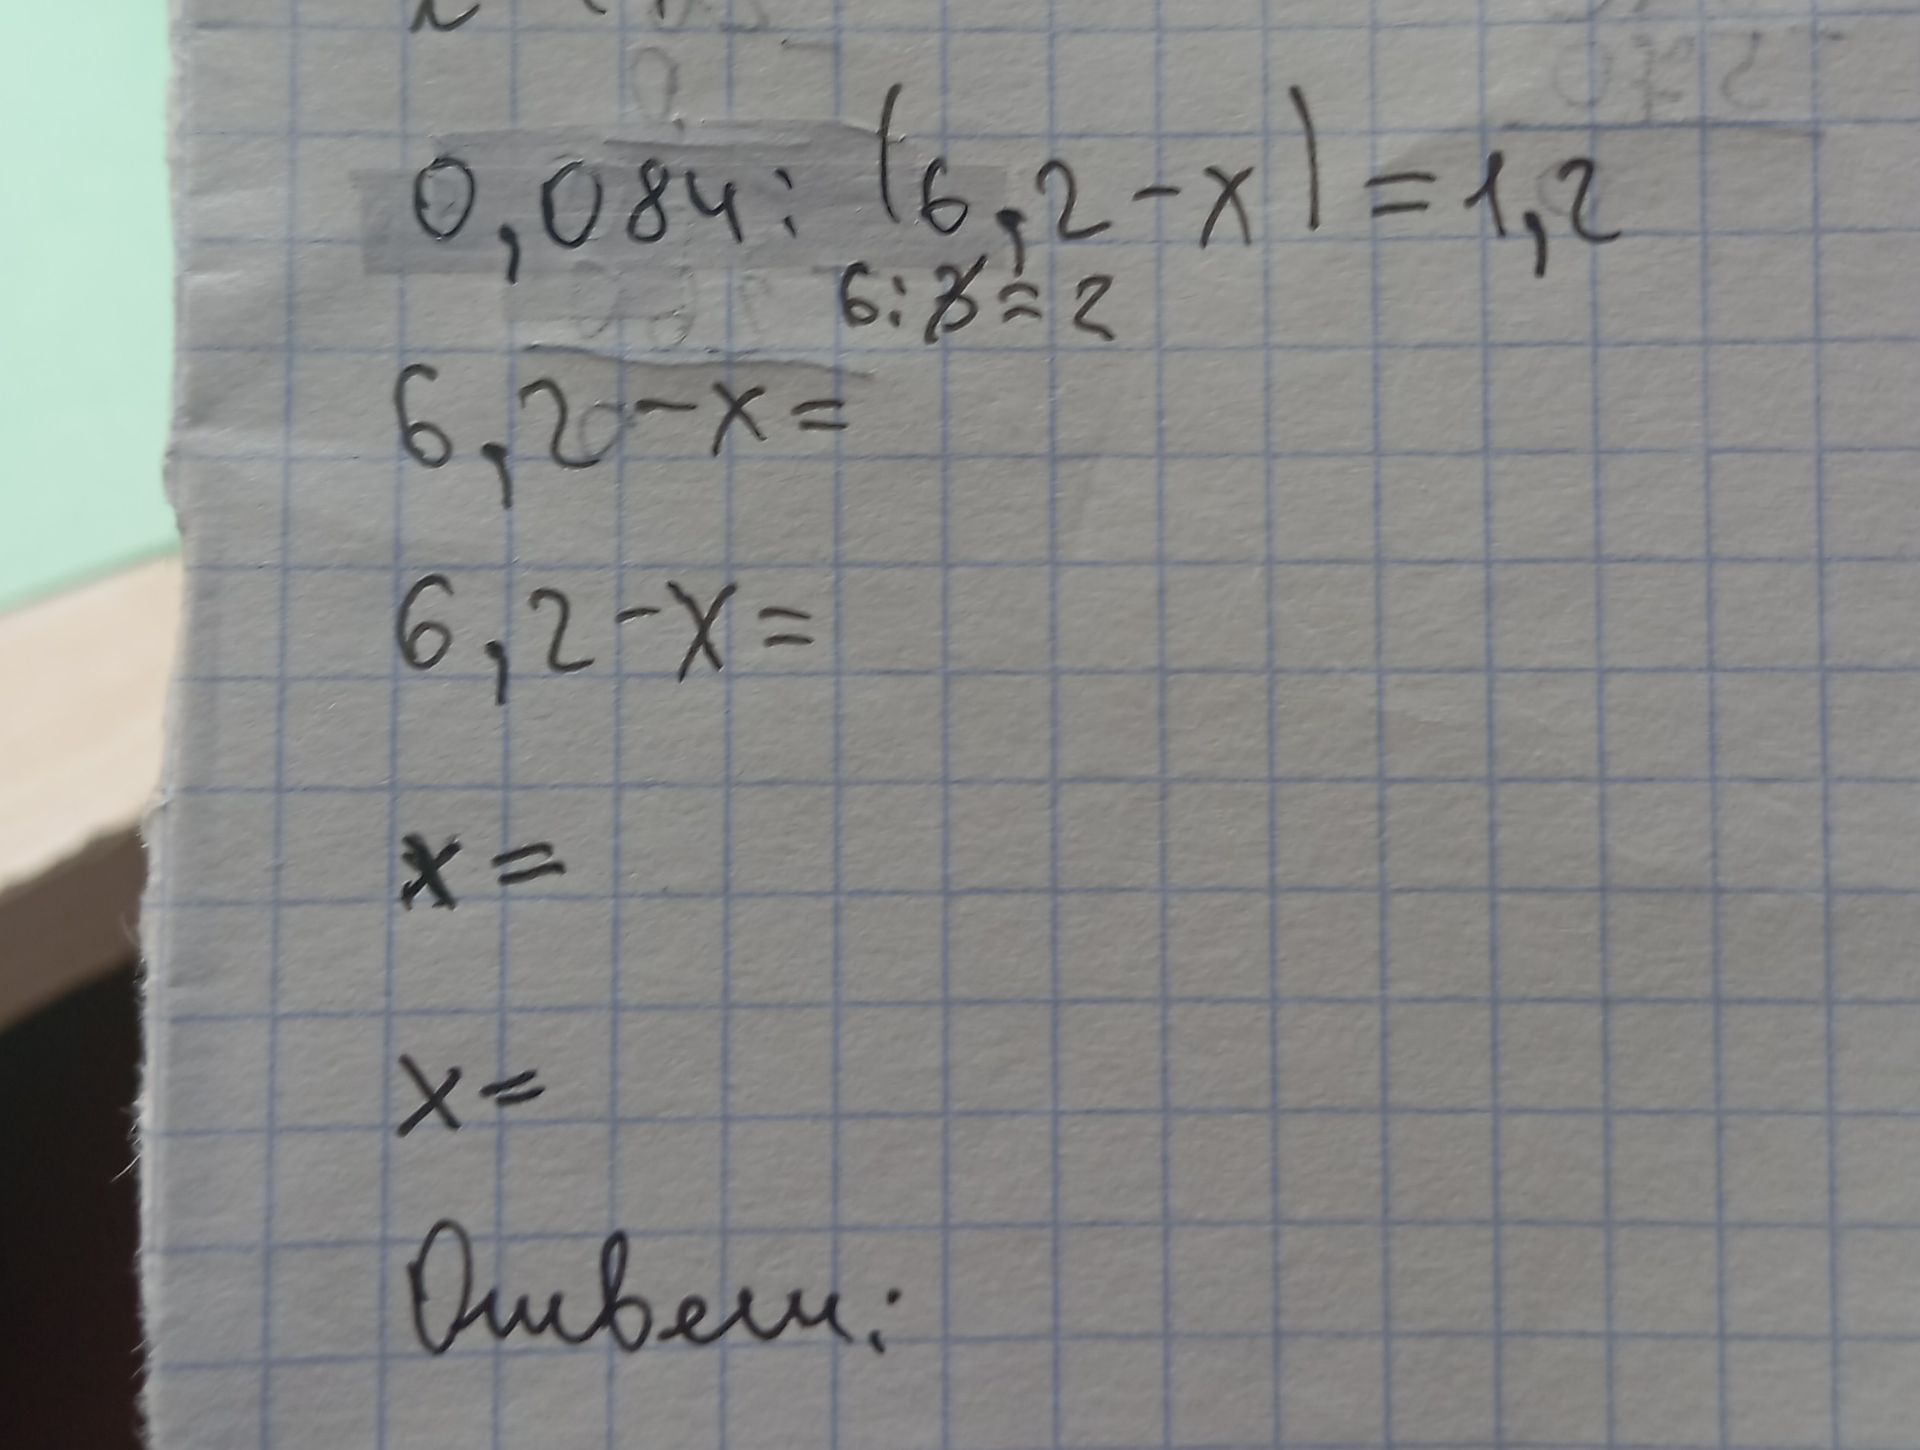 0,084 : (6,2 - x) = 1,2
6 : x = 2
6,2 - x =
6,2 - x =
x =
x =
Ответ: